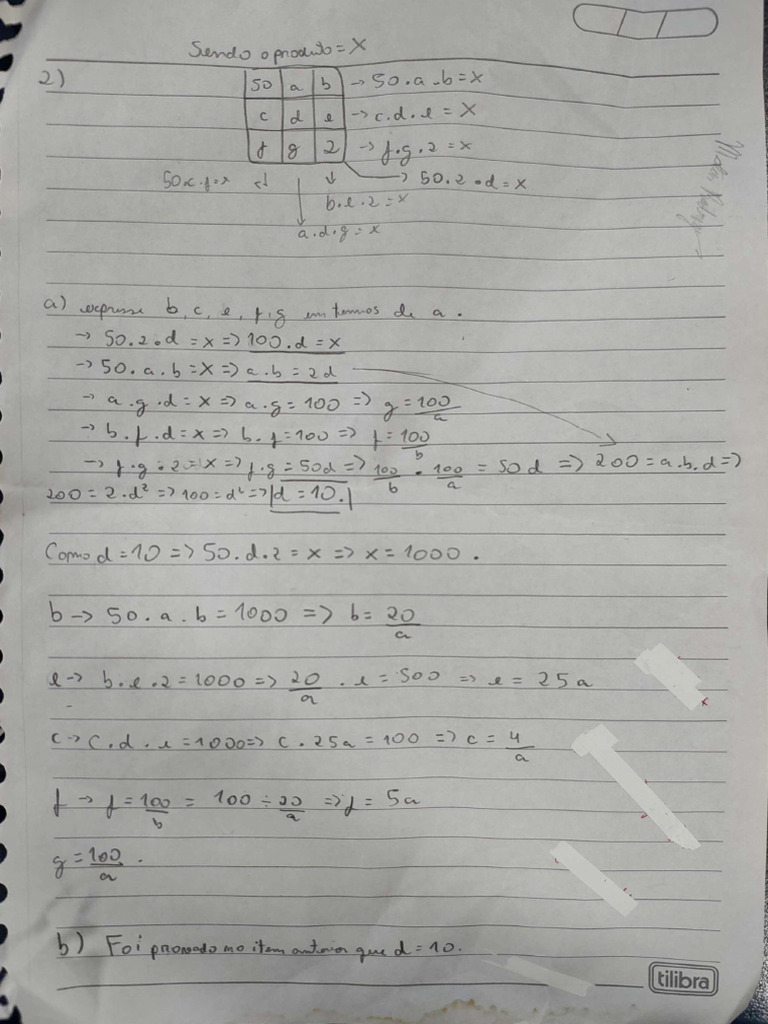 Sendo o produto = X
2) 50 a b → 50.a.b = x
c d e → c.d.e = X
f g 2 → f.g.2 = x
50.c.f = x ↓ ↓ → 50.2.d = x
b.e.2 = x
a.d.g = x
a) expresse b, c, e, f, g em termos de a.
→ 50.2.d = x => 100.d = x
→ 50.a.b = X => a.b = 2d
→ a.g.d = x => a.g = 100 => g = 100/a
→ b.f.d = x => b.f = 100 => f = 100/b
→ f.g.2 = X => f.g = 50d => 100/b . 100/a = 50d => 200 = a.b.d =>
200 = 2.d² => 100 = d² => d = 10.
Como d = 10 => 50.d.2 = x => x = 1000.
b → 50.a.b = 1000 => b = 20/a
e → b.e.2 = 1000 => 20/a . e = 500 => e = 25a
c → c.d.e = 1000 => c.25a = 100 => c = 4/a
f → f = 100/b = 100 ÷ 20/a => f = 5a
g = 100/a.
b) Foi provado no item anterior que d = 10.
tilibra